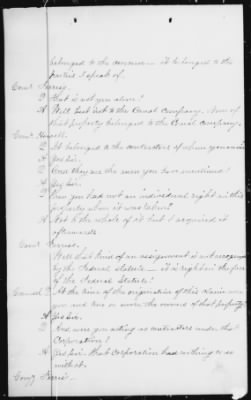 belonged to the concern — it belonged to the
parties I speak of.
Comr Ferriss.
Q That is not you alone?
A Well but not to the Canal Company. None of
that property belonged to the Canal company.
Comr Howell.
Q It belonged to the contractors of whom you were one
A Yes sir.
Q And they are the men you have mentioned?
A Yes sir.
Q You you had not an individual right in this
property when it was taken?
A Not to the whole of it but I acquired it
afterwards.
Comr Ferriss.
Well that kind of an assignment is not recognized
by the Federal statute — it is right in the face
of the Federal Statute.
Counsel Q At the time of the origination of this claim were
you and one or more the owners of that property?
A Yes sir.
Q And were you acting as contractors under that
Corporation?
A Yes sir. That corporation had nothing to do
with it.
Comr Ferriss —